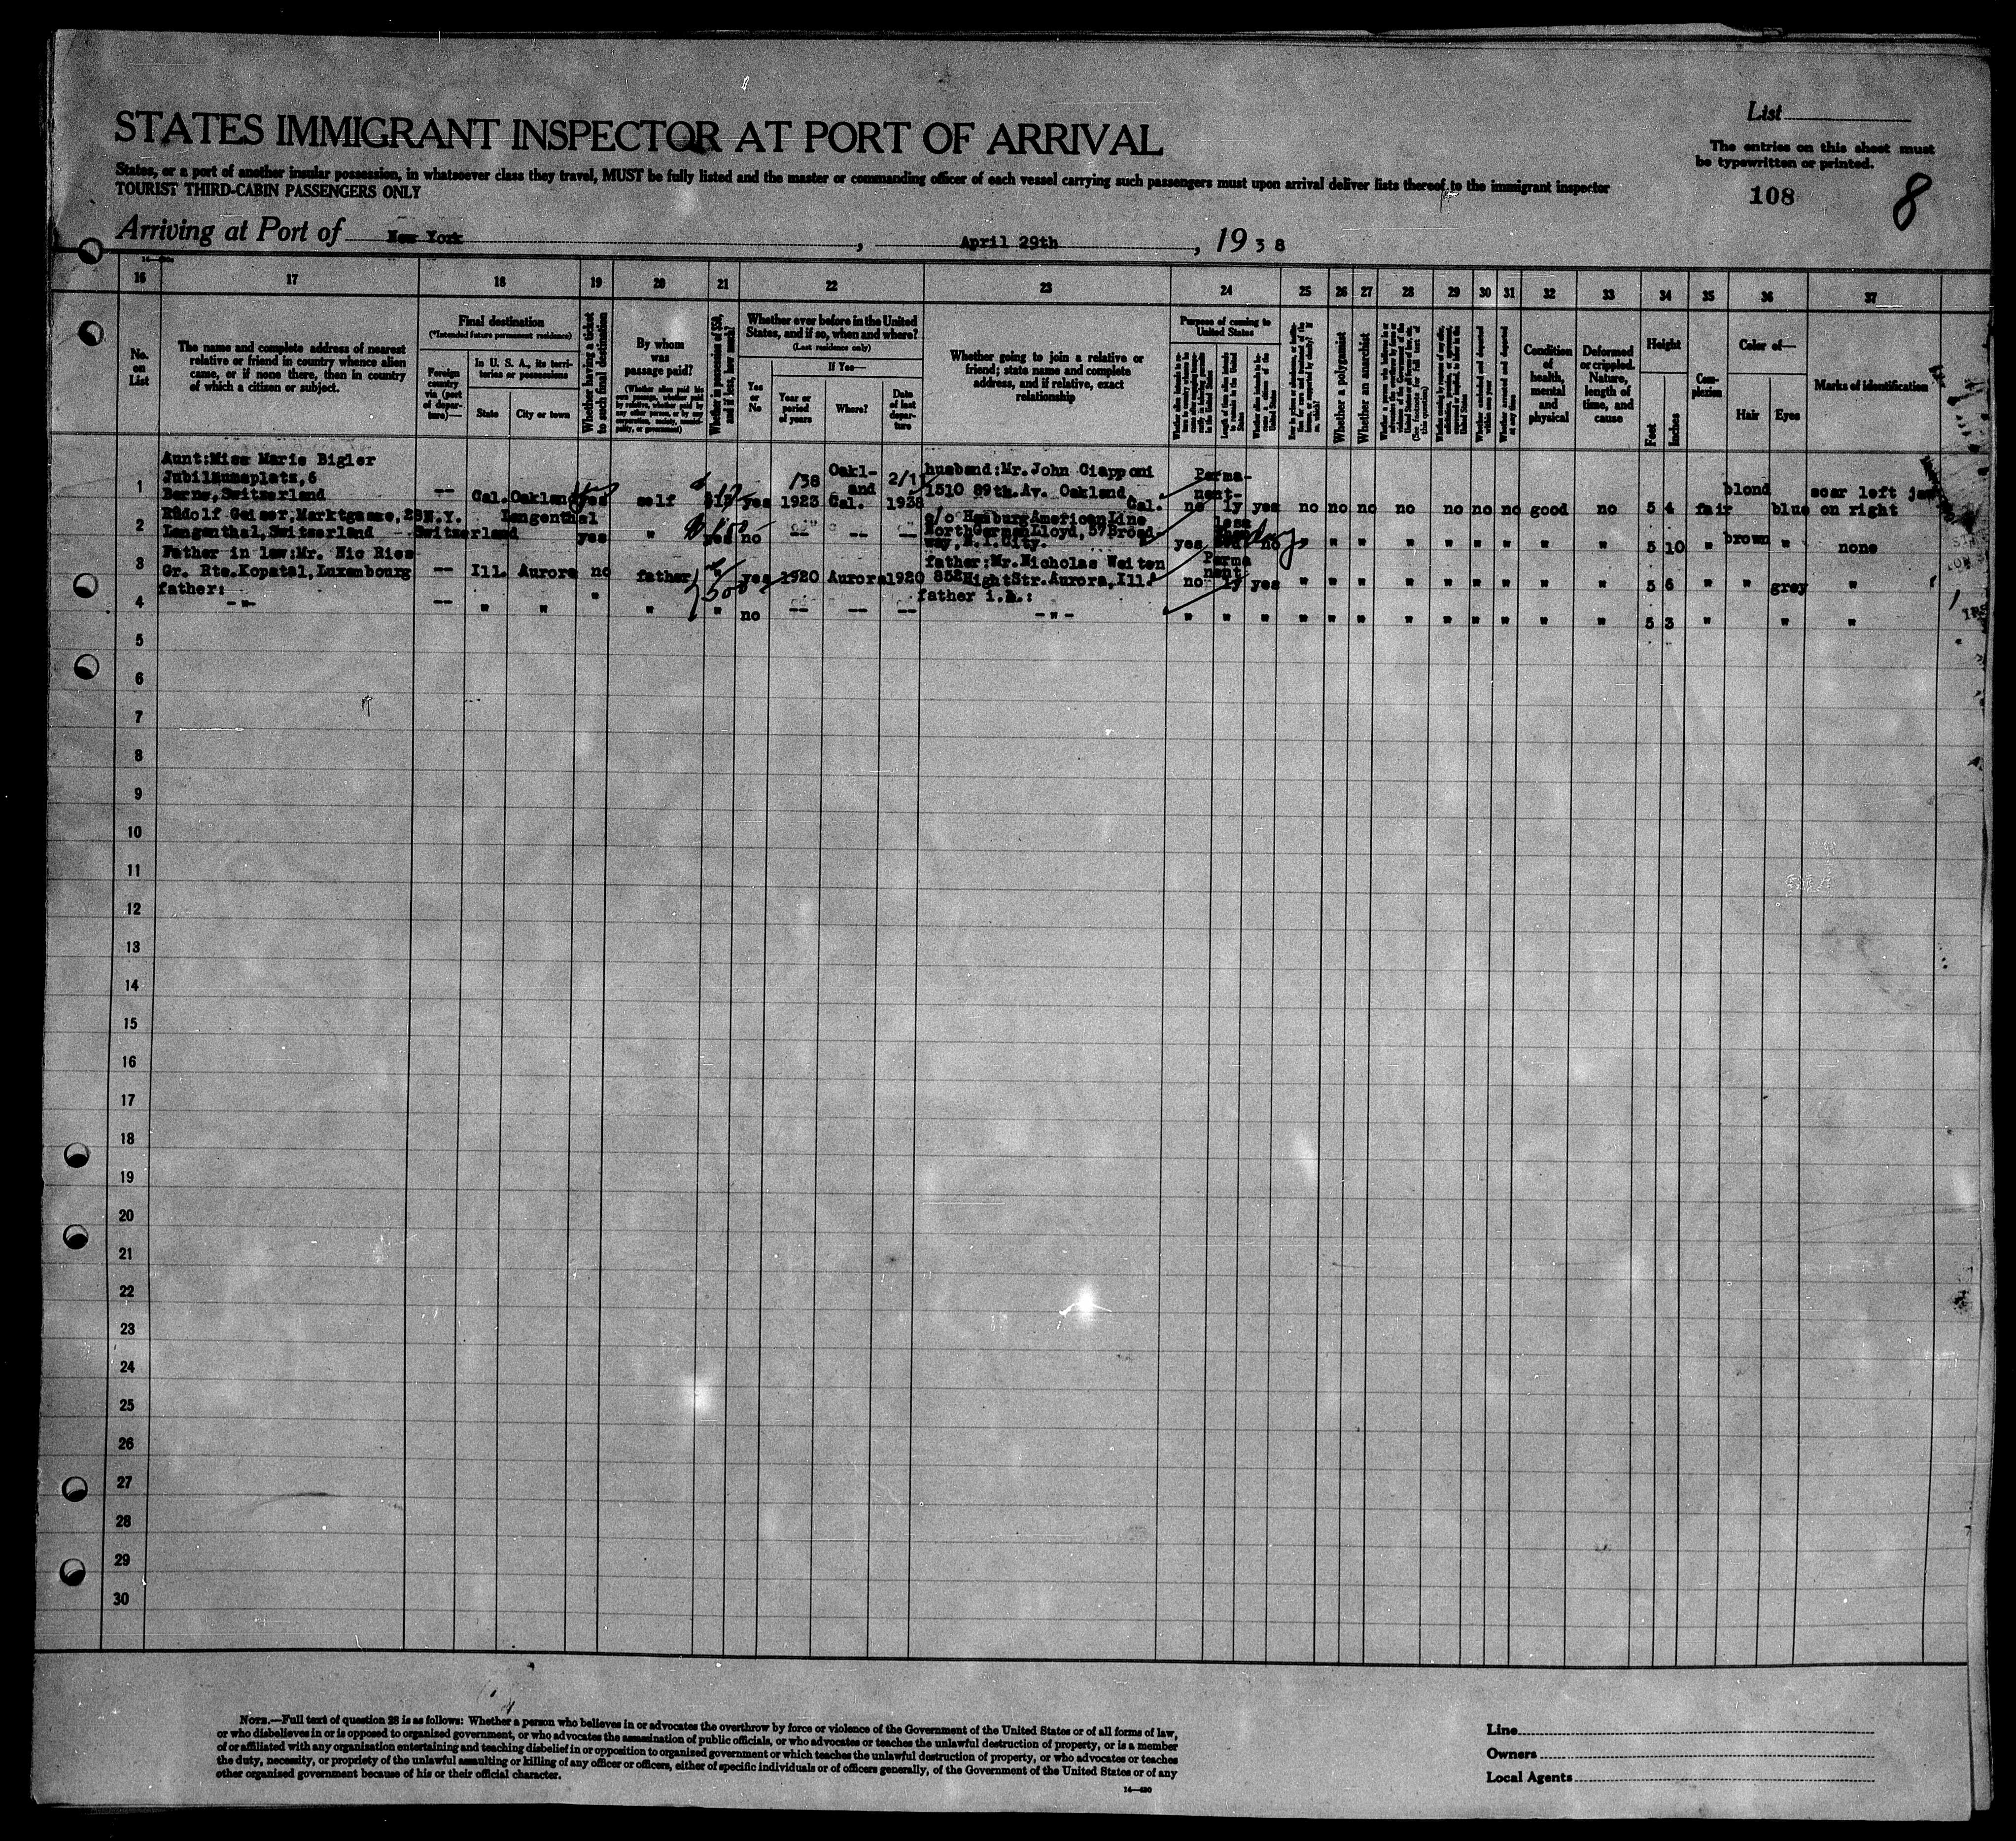 List
STATES IMMIGRANT INSPECTOR AT PORT OF ARRIVAL
The entries on this sheet must
be typewritten or printed.
States, or a port of another insular possession, in whatsoever class they travel, MUST be fully listed and the master or commanding officer of each vessel carrying such passengers must upon arrival deliver lists thereof to the immigrant inspector
TOURIST THIRD-CABIN PASSENGERS ONLY
108
8
Arriving at Port of New York, April 29th, 1938
16 17 18 19 20 21 22 23 24 25 26 27 28 29 30 31 32 33 34 35 36 37
No.
on
List
The name and complete address of nearest
relative or friend in country whence alien
came, or if none there, then in country
of which a citizen or subject.
Final destination
(*Intended future permanent residence)
Foreign
country
via (port
of depar-
ture)—
In U. S. A., its terri-
tories or possessions
State
City or town
Whether having a ticket
to such final destination
By whom
was
passage paid?
(Whether alien paid his
own passage, whether paid
by relative, whether paid by
any other person, or by any
corporation, society, munici-
pality, or government)
Whether in possession of $50,
and if less, how much?
Whether ever before in the United
States, and if so, when and where?
(Last residence only)
Yes
or
No
If Yes—
Year or
period
of years
Where?
Date
of last
depar-
ture
Whether going to join a relative or
friend; state name and complete
address, and if relative, exact
relationship
Purpose of coming to
United States
Whether a polygamist
Whether an anarchist
Condition
of
health,
mental
and
physical
Deformed
or crippled.
Nature,
length of
time, and
cause
Height
Feet
Inches
Com-
plexion
Color of—
Hair
Eyes
Marks of identification
Aunt:Miss Marie Bigler
Jubiläumsplatz,6
1 Berne,Switzerland -- Cal. Oakland yes self $15 yes 1923 /38 Oakl-and Cal. 2/11 1938 husband:Mr. John Ciapponi
1510 89th.Av. Oakland, Cal. no Perma-nent-ly yes no no no no no no no good no 5 4 fair blond blue scar left jaw on right
Rudolf Geiser,Marktgasse,28 N.Y. Langenthal
2 Langenthal,Switzerland Switzerland yes " yes no -- -- -- c/o Hamburg American Line
North German Lloyd, 57 Broad-
way, N.Y.City. yes less no " " " " " " " " " 5 10 " brown " none
Father in law:Mr. Nic Ries
3 Gr. Rte.Kopstal,Luxembourg -- Ill. Aurora no father " yes 1920 Aurora 1920 father:Mr.Nicholas Weiten
852 HightStr.Aurora,Ill. no Permanently yes " " " " " " " " " 5 6 " " grey "
father:
4 -"- -- " " " " " no -- -- -- father i.l.:
-"- " " " " " " " " " " " " 5 3 " " "
5
6
7
8
9
10
11
12
13
14
15
16
17
18
19
20
21
22
23
24
25
26
27
28
29
30
NOTE.—Full text of question 28 is as follows: Whether a person who believes in or advocates the overthrow by force or violence of the Government of the United States or of all forms of law,
or who disbelieves in or is opposed to organized government, or who advocates the assassination of public officials, or who advocates or teaches the unlawful destruction of property, or is a member
of or affiliated with any organization entertaining and teaching disbelief in or opposition to organized government or which teaches the unlawful destruction of property, or who advocates or teaches
the duty, necessity, or propriety of the unlawful assaulting or killing of any officer or officers, either of specific individuals or of officers generally, of the Government of the United States or of any
other organized government because of his or their official character.
14—430
Line
Owners
Local Agents